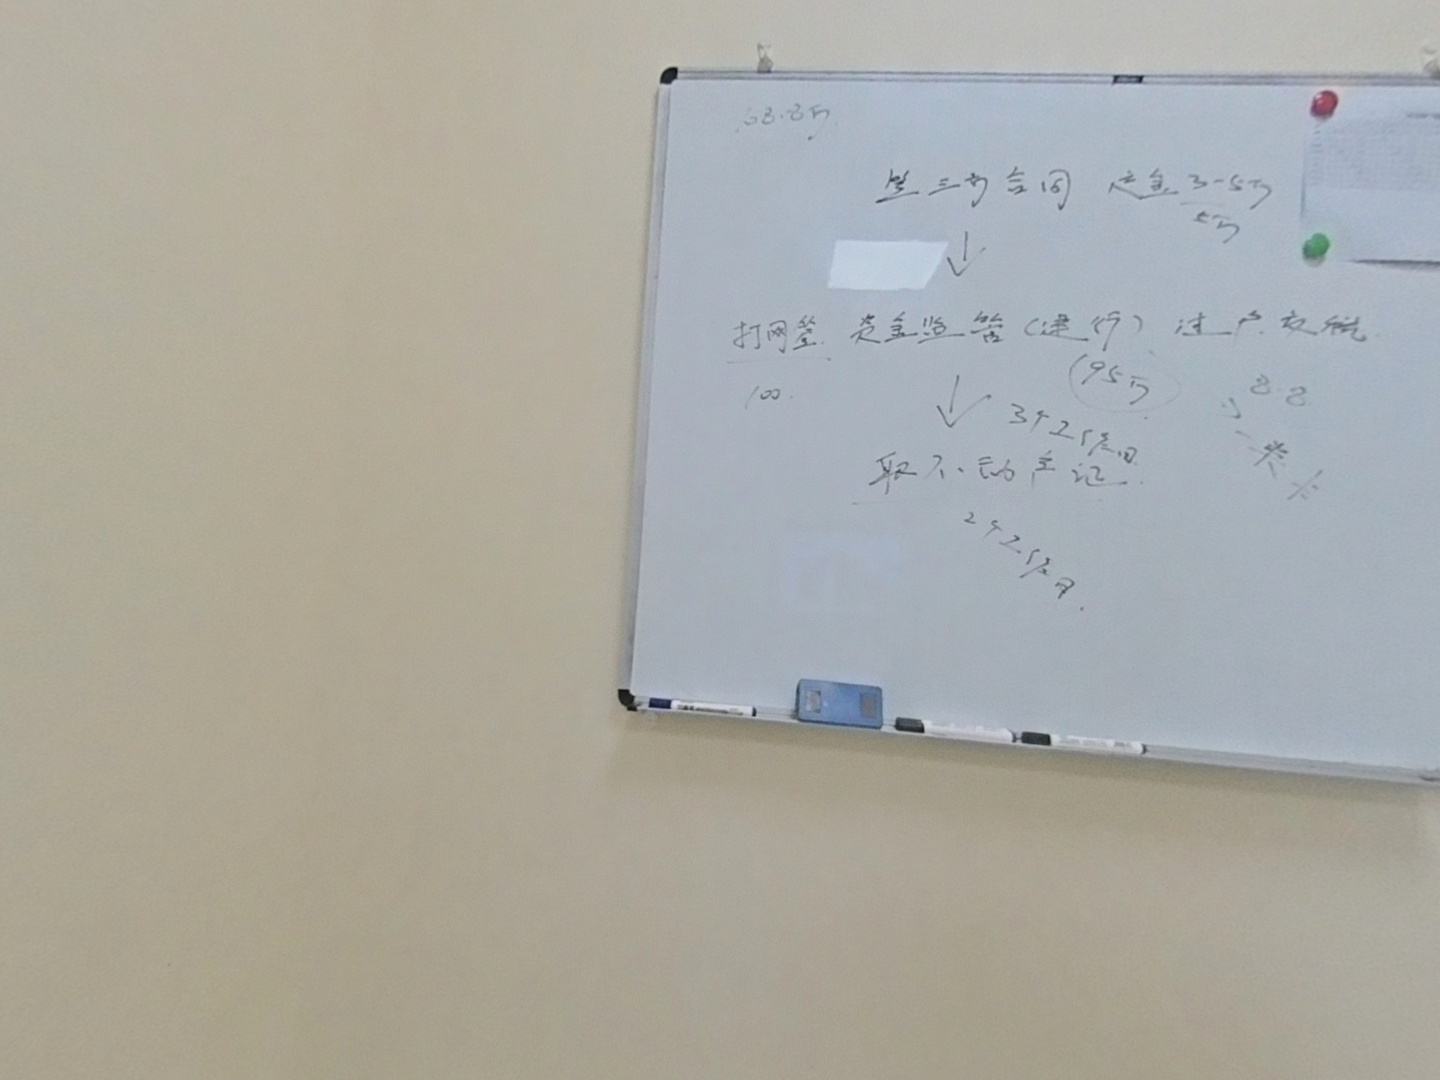 68.8万
签三方合同 定金3-5万
5万
打网签 资金监管(建行) 过户交税
100.
95万
8.8
3个工作日
一类卡
取不动产证
2个工作日.